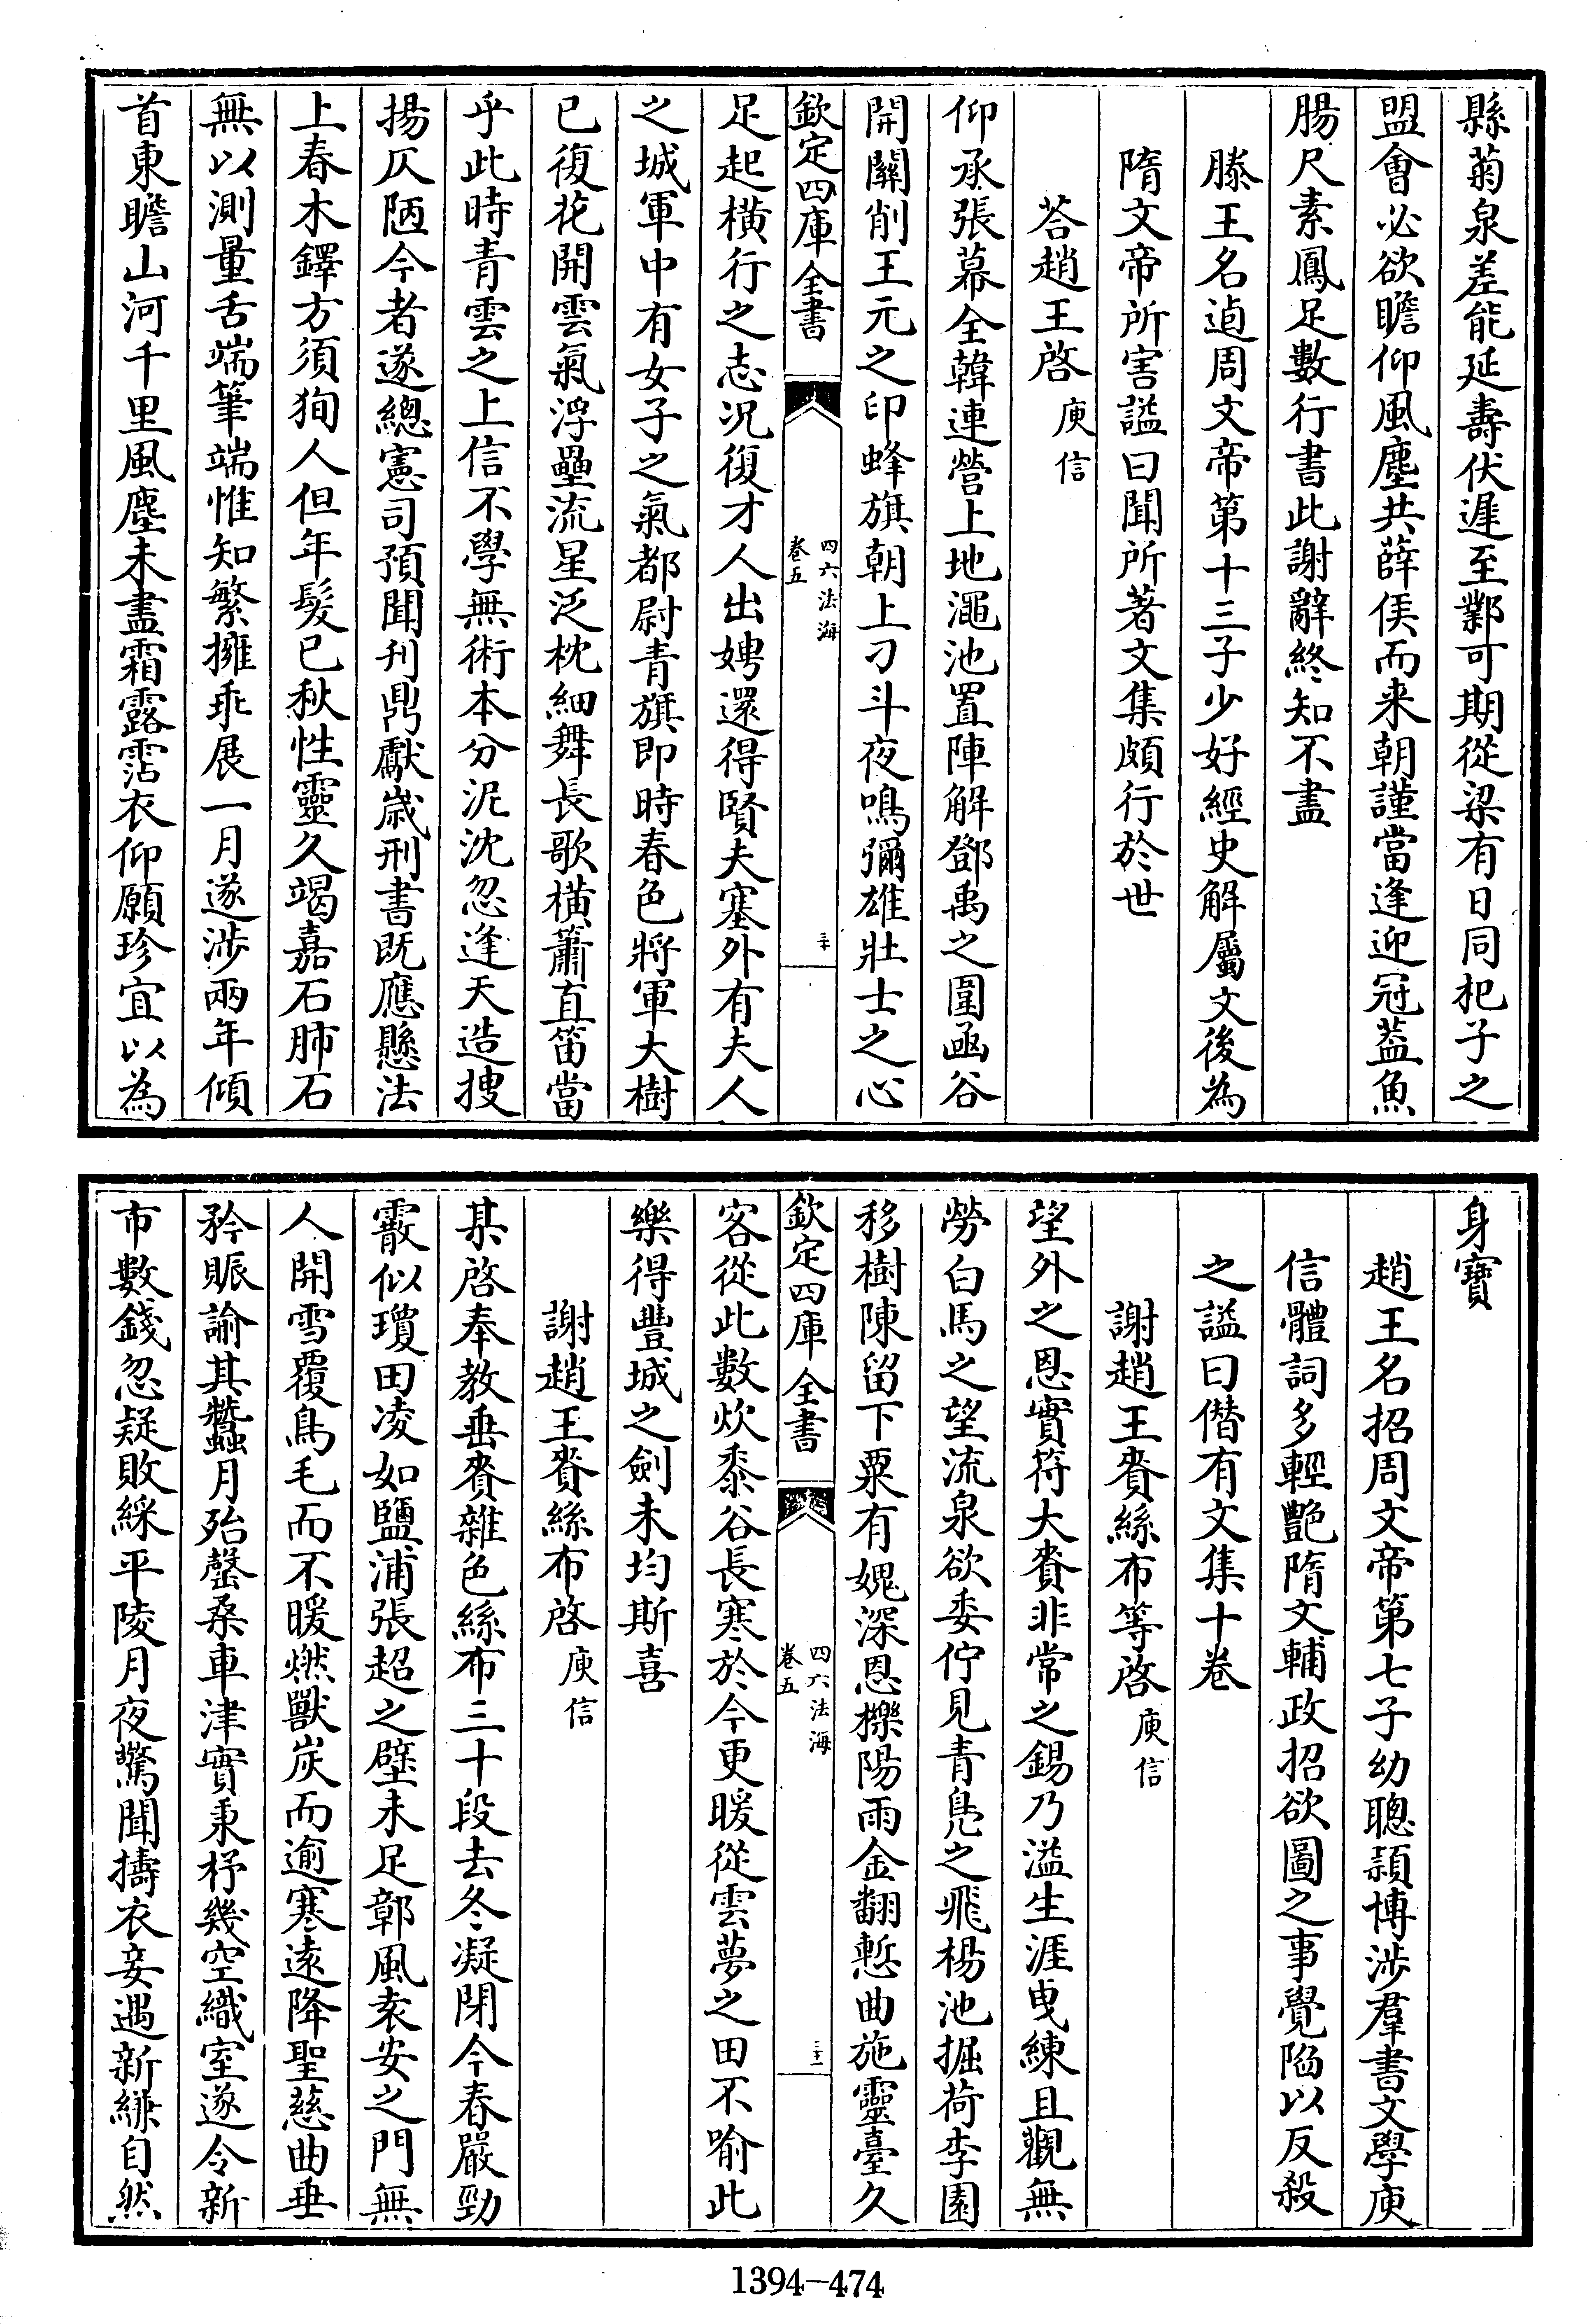 縣菊泉差能延壽伏遲至鄴可期從梁有日同杞子之
盟會必欲瞻仰風塵共薛侯而来朝謹當逢迎冠葢魚
腸尺素鳳足數行書此謝辭終知不盡
滕王名逌周文帝第十三子少好經史解屬文後為
隋文帝所害諡曰聞所著文集頗行於世
荅趙王啓 庾信
仰承張幕全韓連營上地澠池置陣解鄧禹之圍凾谷
開關削王元之印蜂旗朝上刁斗夜鳴彌雄壯士之心
欽定四庫全書
四六法海
卷五
三十
足起橫行之志况復才人出娉還得賢夫塞外有夫人
之城軍中有女子之氣都尉青旗即時春色將軍大樹
已復花開雲氣浮壘流星泛枕細舞長歌橫簫直笛當
乎此時青雲之上信不學無術本分泥沈忽逢天造搜
揚仄陋今者遂總憲司預聞刋鼎獻歲刑書既應懸法
上春木鐸方須狥人但年髮已秋性靈久竭嘉石肺石
無以測量舌端筆端惟知繁擁乖展一月遂涉兩年傾
首東瞻山河千里風塵未盡霜露霑衣仰願珍宜以為
身寳
趙王名招周文帝第七子幼聰頴博涉羣書文學庾
信體詞多輕艷隋文輔政招欲圖之事覺陷以反殺
之諡曰僭有文集十卷
謝趙王賚絲布等啓 庾信
望外之恩實符大賚非常之錫乃溢生涯曳練且觀無
勞白馬之望流泉欲委佇見青鳬之飛楊池掘荷李園
移樹陳留下粟有媿深恩櫟陽雨金翻慙曲施靈臺久
欽定四庫全書
四六法海
卷五
三十一
客從此數炊黍谷長寒於今更暖從雲夢之田不喻此
樂得豐城之劍未均斯喜
謝趙王賚絲布啓 庾信
某啓奉教垂賚雜色絲布三十段去冬凝閉今春嚴勁
霰似瓊田凌如鹽浦張超之壁未足鄣風袁安之門無
人開雪覆鳥毛而不暖燃獸炭而逾寒遠降聖慈曲垂
矜賑諭其蠶月殆罄桑車津實秉杼幾空織室遂令新
市數錢忽疑敗綵平陵月夜驚聞擣衣妾遇新縑自然
1394-474